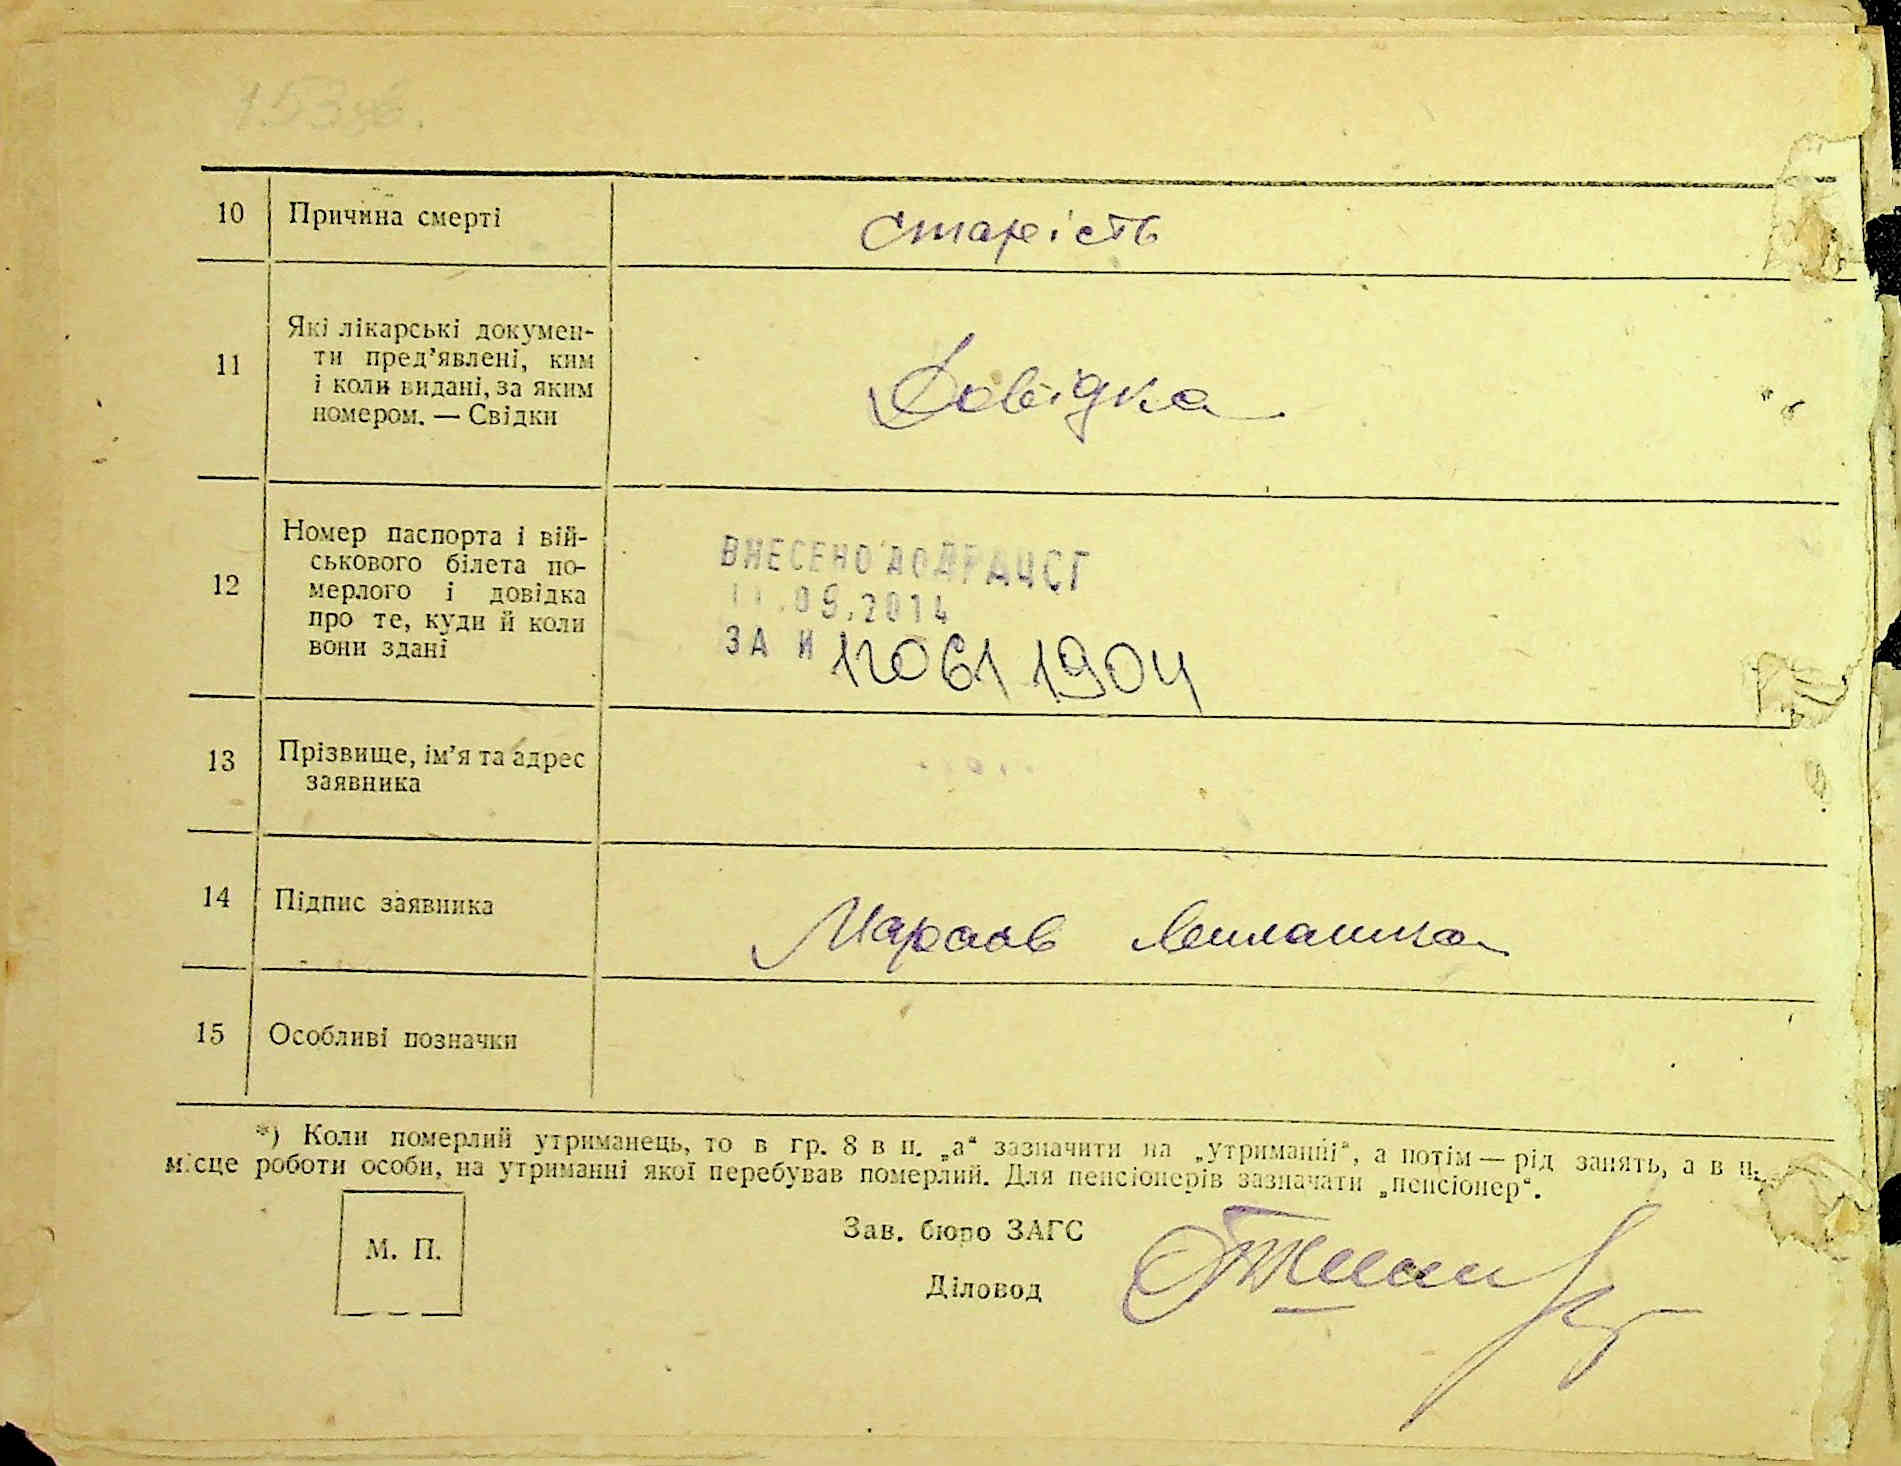 10 Причина смерті старість
11 Які лікарські докумен-
ти пред’явлені, ким
і коли видані, за яким
номером. — Свідки
Довідка
12 Номер паспорта і вій-
ськового білета по-
мерлого і довідка
про те, куди й коли
вони здані
ВНЕСЕНО ДО ДРАЦСГ
11.09.2014
ЗА N 12061 1904
13 Прізвище, ім’я та адрес
заявника
14 Підпис заявника
15 Особливі позначки
*) Коли померлий утриманець, то в гр. 8 в п. „а“ зазначити на „утриманні“, а потім — рід занять, а в п.
місце роботи особи, на утриманні якої перебував померлий. Для пенсіонерів зазначати „пенсіонер“.
М. П.
Зав. бюро ЗАГС
Діловод